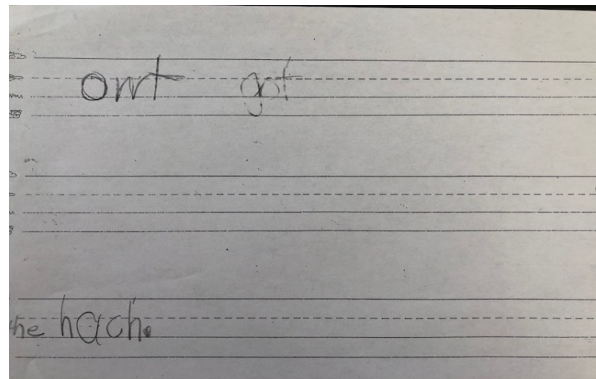 ont got
the hach.